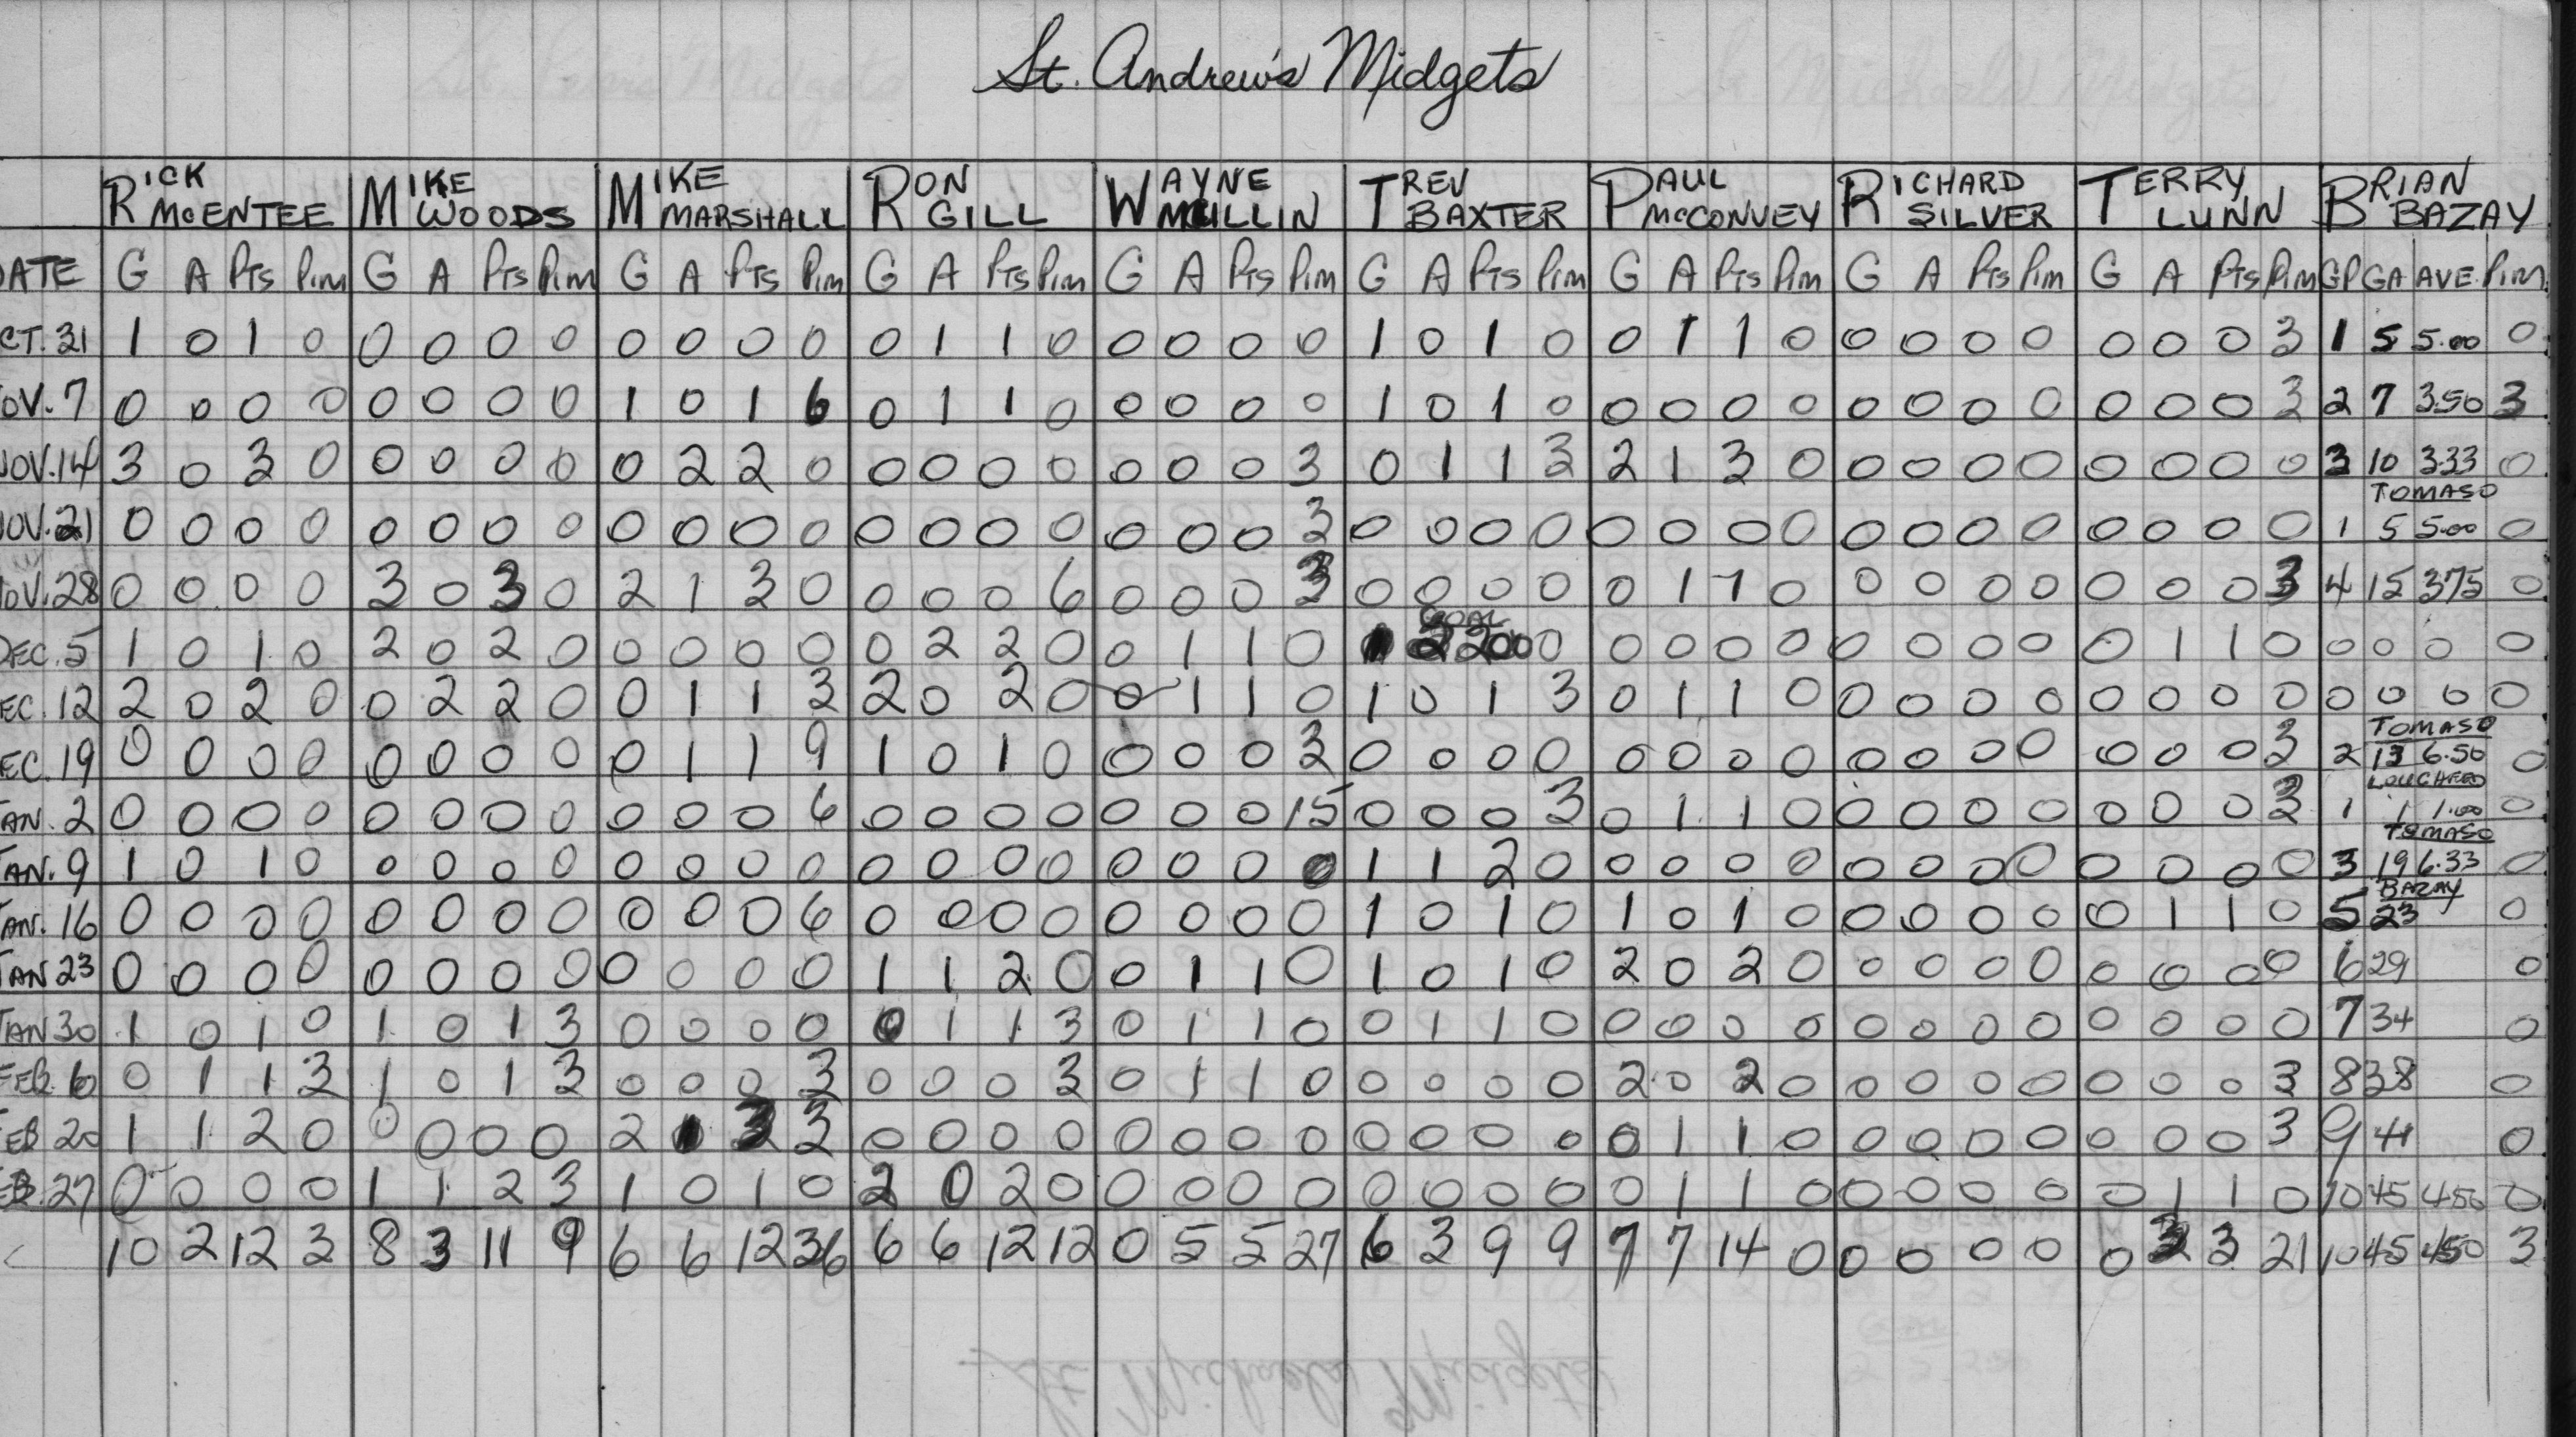 St. Andrew's Midgets
RICK McENTEE MIKE WOODS MIKE MARSHALL RON GILL WAYNE MULLIN TREV BAXTER PAUL McCONVEY RICHARD SILVER TERRY LUNN BRIAN BAZAY
DATE G A Pts Pim G A Pts Pim G A Pts Pim G A Pts Pim G A Pts Pim G A Pts Pim G A Pts Pim G A Pts Pim G A Pts Pim GP GA AVE. Pim
CT. 31 1 0 1 0 0 0 0 0 0 0 0 0 0 1 1 0 0 0 0 0 1 0 1 0 0 1 1 0 0 0 0 0 0 0 0 3 1 5 5.00 0
OV. 7 0 0 0 0 0 0 0 0 1 0 1 6 0 1 1 0 0 0 0 0 1 0 1 0 0 0 0 0 0 0 0 0 0 0 0 3 2 7 3.50 3
NOV. 14 3 0 3 0 0 0 0 0 0 2 2 0 0 0 0 0 0 0 0 3 0 1 1 3 2 1 3 0 0 0 0 0 0 0 0 0 3 10 3.33 0
TOMASO
NOV. 21 0 0 0 0 0 0 0 0 0 0 0 0 0 0 0 0 0 0 0 3 0 0 0 0 0 0 0 0 0 0 0 0 0 0 0 0 1 5 5.00 0
NOV. 28 0 0 0 0 3 0 3 0 2 1 3 0 0 0 0 6 0 0 0 3 0 0 0 0 0 1 1 0 0 0 0 0 0 0 0 3 4 15 3.75 0
GOAL
DEC. 5 1 0 1 0 2 0 2 0 0 0 0 0 0 2 2 0 0 1 1 0 1 2 2.00 0 0 0 0 0 0 0 0 0 0 1 1 0 0 0 0 0
EC. 12 2 0 2 0 0 2 2 0 0 1 1 3 2 0 2 0 0 1 1 0 1 0 1 3 0 1 1 0 0 0 0 0 0 0 0 0 0 0 0 0
TOMASO
EC. 19 0 0 0 0 0 0 0 0 0 1 1 9 1 0 1 0 0 0 0 3 0 0 0 0 0 0 0 0 0 0 0 0 0 0 0 3 2 13 6.50 0
LOUGHEED
AN. 2 0 0 0 0 0 0 0 0 0 0 0 6 0 0 0 0 0 0 0 15 0 0 0 3 0 1 1 0 0 0 0 0 0 0 0 3 1 1 1.00 0
TOMASO
AN. 9 1 0 1 0 0 0 0 0 0 0 0 0 0 0 0 0 0 0 0 0 1 1 2 0 0 0 0 0 0 0 0 0 0 0 0 0 3 19 6.33 0
BAZAY
AN. 16 0 0 0 0 0 0 0 0 0 0 0 6 0 0 0 0 0 0 0 0 1 0 1 0 1 0 1 0 0 0 0 0 0 1 1 0 5 23 0
JAN 23 0 0 0 0 0 0 0 0 0 0 0 0 1 1 2 0 0 1 1 0 1 0 1 0 2 0 2 0 0 0 0 0 0 0 0 0 6 29 0
JAN 30 1 0 1 0 1 0 1 3 0 0 0 0 0 1 1 3 0 1 1 0 0 1 1 0 0 0 0 0 0 0 0 0 0 0 0 0 7 34 0
FEB. 6 0 1 1 3 1 0 1 3 0 0 0 3 0 0 0 3 0 1 1 0 0 0 0 0 2 0 2 0 0 0 0 0 0 0 0 3 8 38 0
EB 20 1 1 2 0 0 0 0 0 2 1 3 3 0 0 0 0 0 0 0 0 0 0 0 0 0 1 1 0 0 0 0 0 0 0 0 3 9 41 0
EB. 27 0 0 0 0 1 1 2 3 1 0 1 0 2 0 2 0 0 0 0 0 0 0 0 0 0 1 1 0 0 0 0 0 0 1 1 0 10 45 4.50 0
10 2 12 3 8 3 11 9 6 6 12 36 6 6 12 12 0 5 5 27 6 3 9 9 7 7 14 0 0 0 0 0 0 3 3 21 10 45 4.50 3